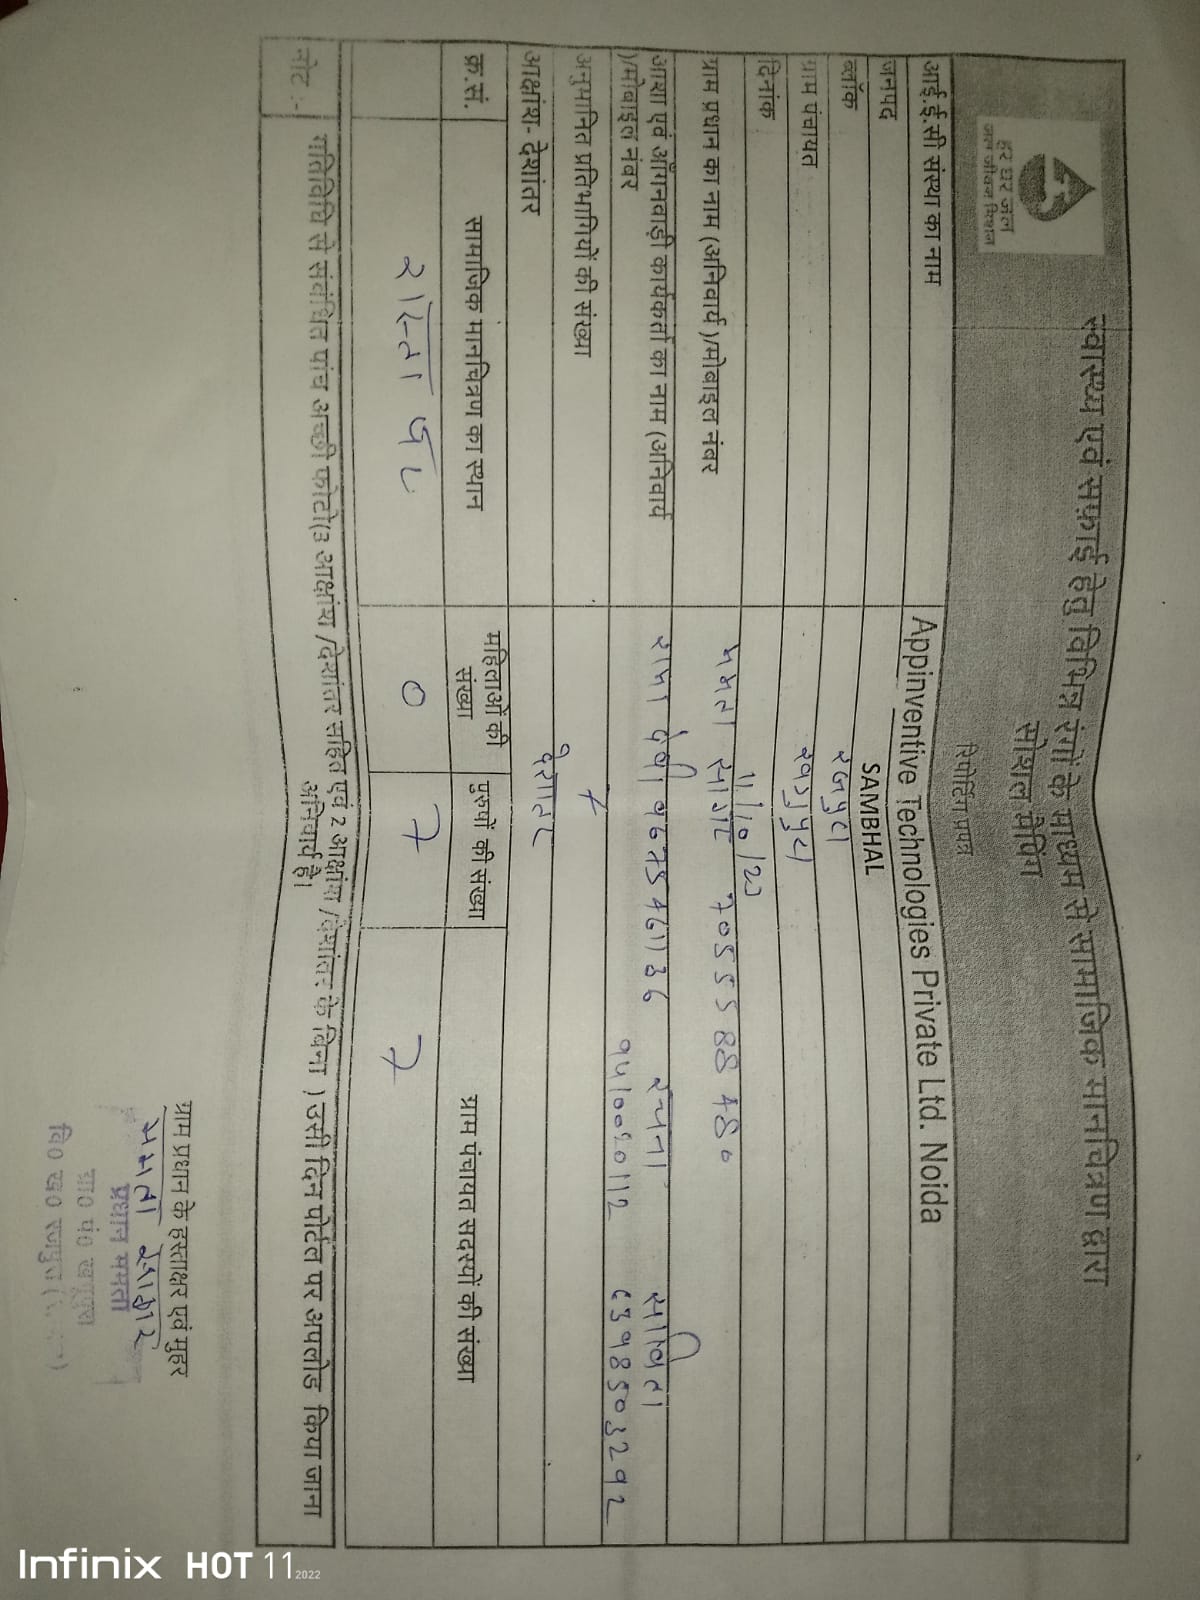 हर घर जल
जल जीवन मिशन
स्वास्थ्य एवं सफ़ाई हेतु विभिन्न रंगों के माध्यम से सामाजिक मानचित्रण द्वारा
सोशल मैपिंग
रिपोर्टिंग प्रपत्र
आई.ई.सी संस्था का नाम Appinventive Technologies Private Ltd. Noida
जनपद SAMBHAL
ब्लॉक रजपुरा
ग्राम पंचायत
दिनांक 11/10/23
ग्राम प्रधान का नाम (अनिवार्य )/मोबाइल नंबर ममता सागर
आशा एवं आँगनवाड़ी कार्यकर्ता का नाम (अनिवार्य रामा देवी रचना सविता
)/मोबाइल नंबर
अनुमानित प्रतिभागियों की संख्या 7
आक्षांश- देशांतर
क्र.सं. सामाजिक मानचित्रण का स्थान महिलाओं की संख्या पुरुषों की संख्या ग्राम पंचायत सदस्यों की संख्या
रास्ता पर 0 7 7
नोट :- गतिविधि से संबंधित पांच अच्छी फोटो(3 आक्षांश /देशांतर सहित एवं 2 आक्षांश /देशांतर के बिना ) उसी दिन पोर्टल पर अपलोड किया जाना
अनिवार्य है।
ग्राम प्रधान के हस्ताक्षर एवं मुहर
ममता सागर
प्रधान ममता
ग्रा0 पं0
वि0 ख0
Infinix HOT 11 2022